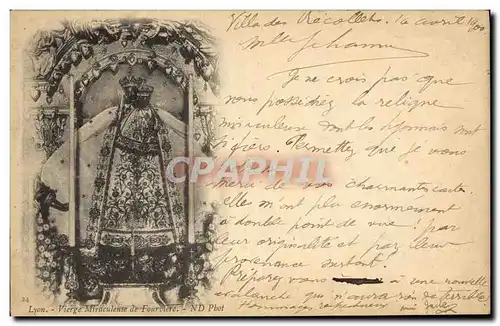 Villa des Récollets. 10 avril 1900
Mlle Jehanne
Je ne crois pas que
vous possédiez la relique
miraculeuse dont les Lyonnais sont
si fiers. Permettez que je vous
de vos charmantes cartes.
elles m'ont plu énormément
à double point de vue : par
leur originalité et par leur
provenance surtout.
Préparez vous à une nouvelle
avalanche qui n'aura rien de terrible
Hommages
CPA
24
Lyon. - Vierge Miraculeuse de Fourvière. - ND Phot